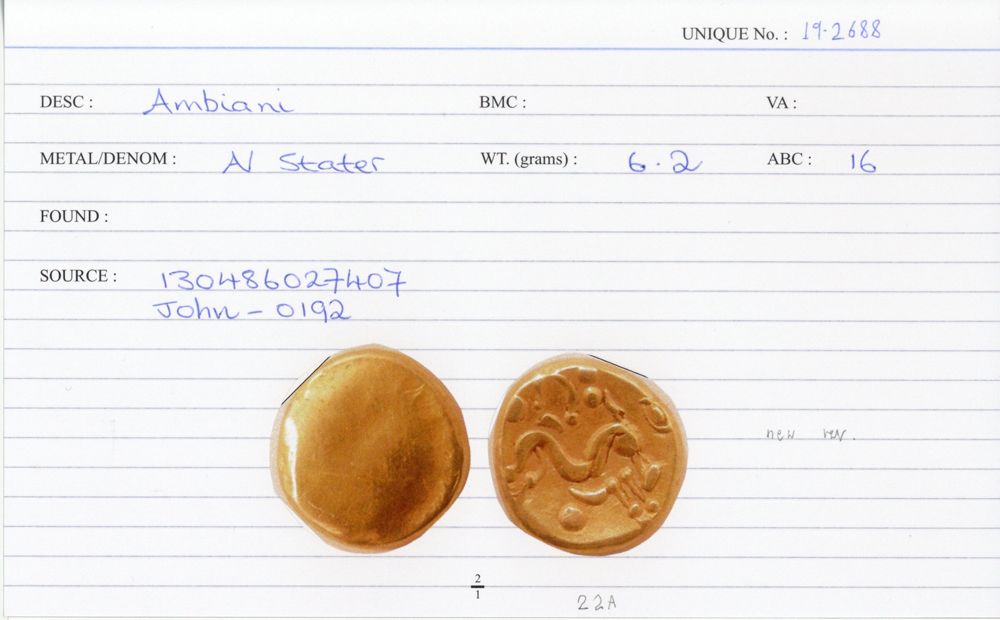 UNIQUE No. : 19-2688
DESC : Ambiani BMC : VA :
METAL/DENOM : N Stater WT. (grams) : 6.2 ABC : 16
FOUND :
SOURCE : 130486027407
John - 0192
new rev.
2
1
22A